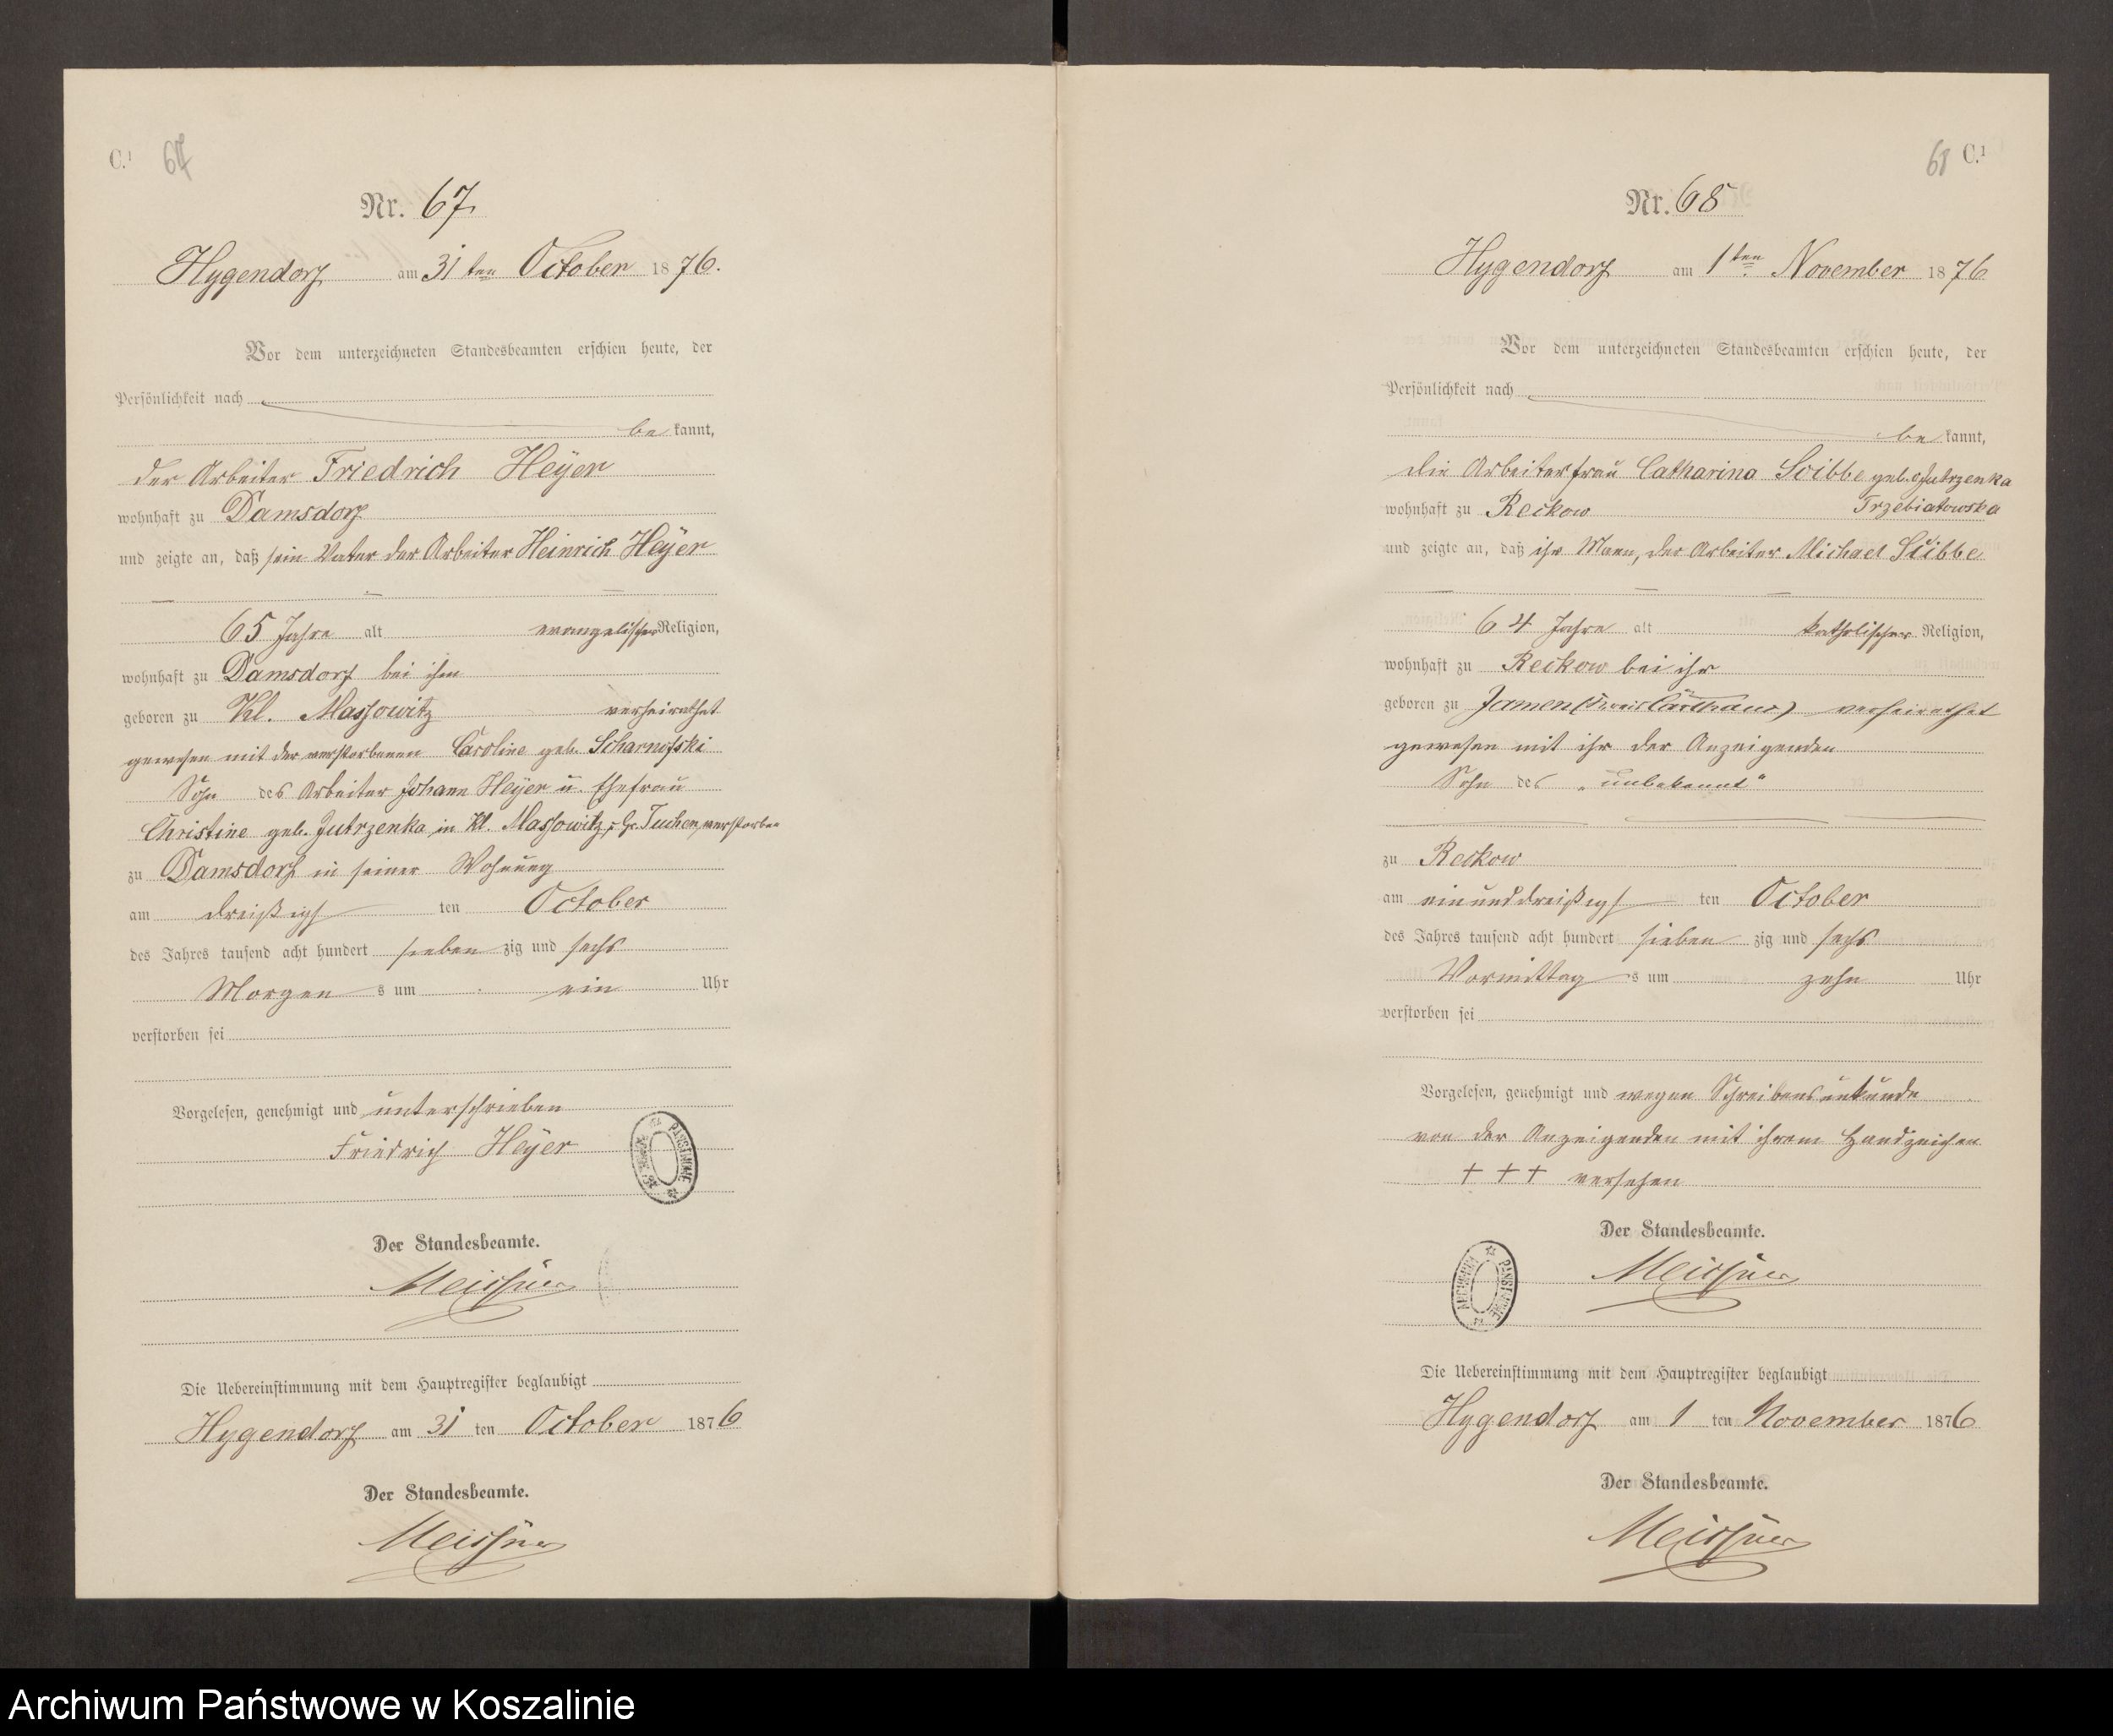 C.¹ 67
Nr. 67
Hygendorf am 31ten October 1876.
Vor dem unterzeichneten Standesbeamten erschien heute, der
Persönlichkeit nach
bekannt,
der Arbeiter Friedrich Heÿer
wohnhaft zu Damsdorf
und zeigte an, daß sein Vater der Arbeiter Heinrich Heÿer
65 Jahre alt evangelischer Religion,
wohnhaft zu Damsdorf bei ihm
geboren zu Kl. Massowitz verheirathet
gewesen mit der verstorbenen Caroline geb. Scharnofski
Sohn des Arbeiter Johann Heÿer u. Ehefrau
Christine geb. Jutrzenka, in Kl. Massowitz, Gr. Tuchen, verstorben
zu Damsdorf in seiner Wohnung
am dreißigsten October
des Jahres tausend acht hundert siebenzig und sechs
Morgens um ein Uhr
verstorben sei
Vorgelesen, genehmigt und unterschrieben
Friedrich Heÿer
Der Standesbeamte.
Meissner
Die Uebereinstimmung mit dem Hauptregister beglaubigt
Hygendorf am 31 ten October 1876
Der Standesbeamte.
Meissner
68 C.¹
Nr. 68
Hygendorf am 1ten November 1876
Vor dem unterzeichneten Standesbeamten erschien heute, der
Persönlichkeit nach
bekannt,
die Arbeiterfrau Catharina Scibbe geb. Jutrzenka
wohnhaft zu Reckow Trzebiatowska
und zeigte an, daß ihr Mann, der Arbeiter Michael Scibbe
64 Jahre alt katholischer Religion,
wohnhaft zu Reckow bei ihr
geboren zu Jamen (Kreis Carthaus) verheirathet
gewesen mit ihr der Anzeigenden
Sohn des „unbekannt"
zu Reckow
am einunddreißigsten October
des Jahres tausend acht hundert siebenzig und sechs
Vormittags um zehn Uhr
verstorben sei
Vorgelesen, genehmigt und wegen Schreibensunkunde
von der Anzeigenden mit ihrem Handzeichen
+ + + versehen
Der Standesbeamte.
Meissner
ARCHIWUM PAŃSTWOWE
Die Uebereinstimmung mit dem Hauptregister beglaubigt
Hygendorf am 1 ten November 1876
Der Standesbeamte.
Meissner
Archiwum Państwowe w Koszalinie